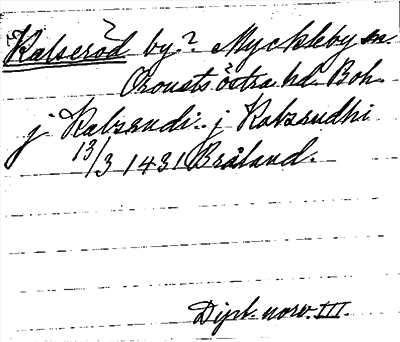 Kalseröd by? Myckleby sn.
Orousts östra hd. Boh.
j Kalzrudi.. j Kalzrudhi
13/3 1431 Bråland.
Dipl. norv. III.